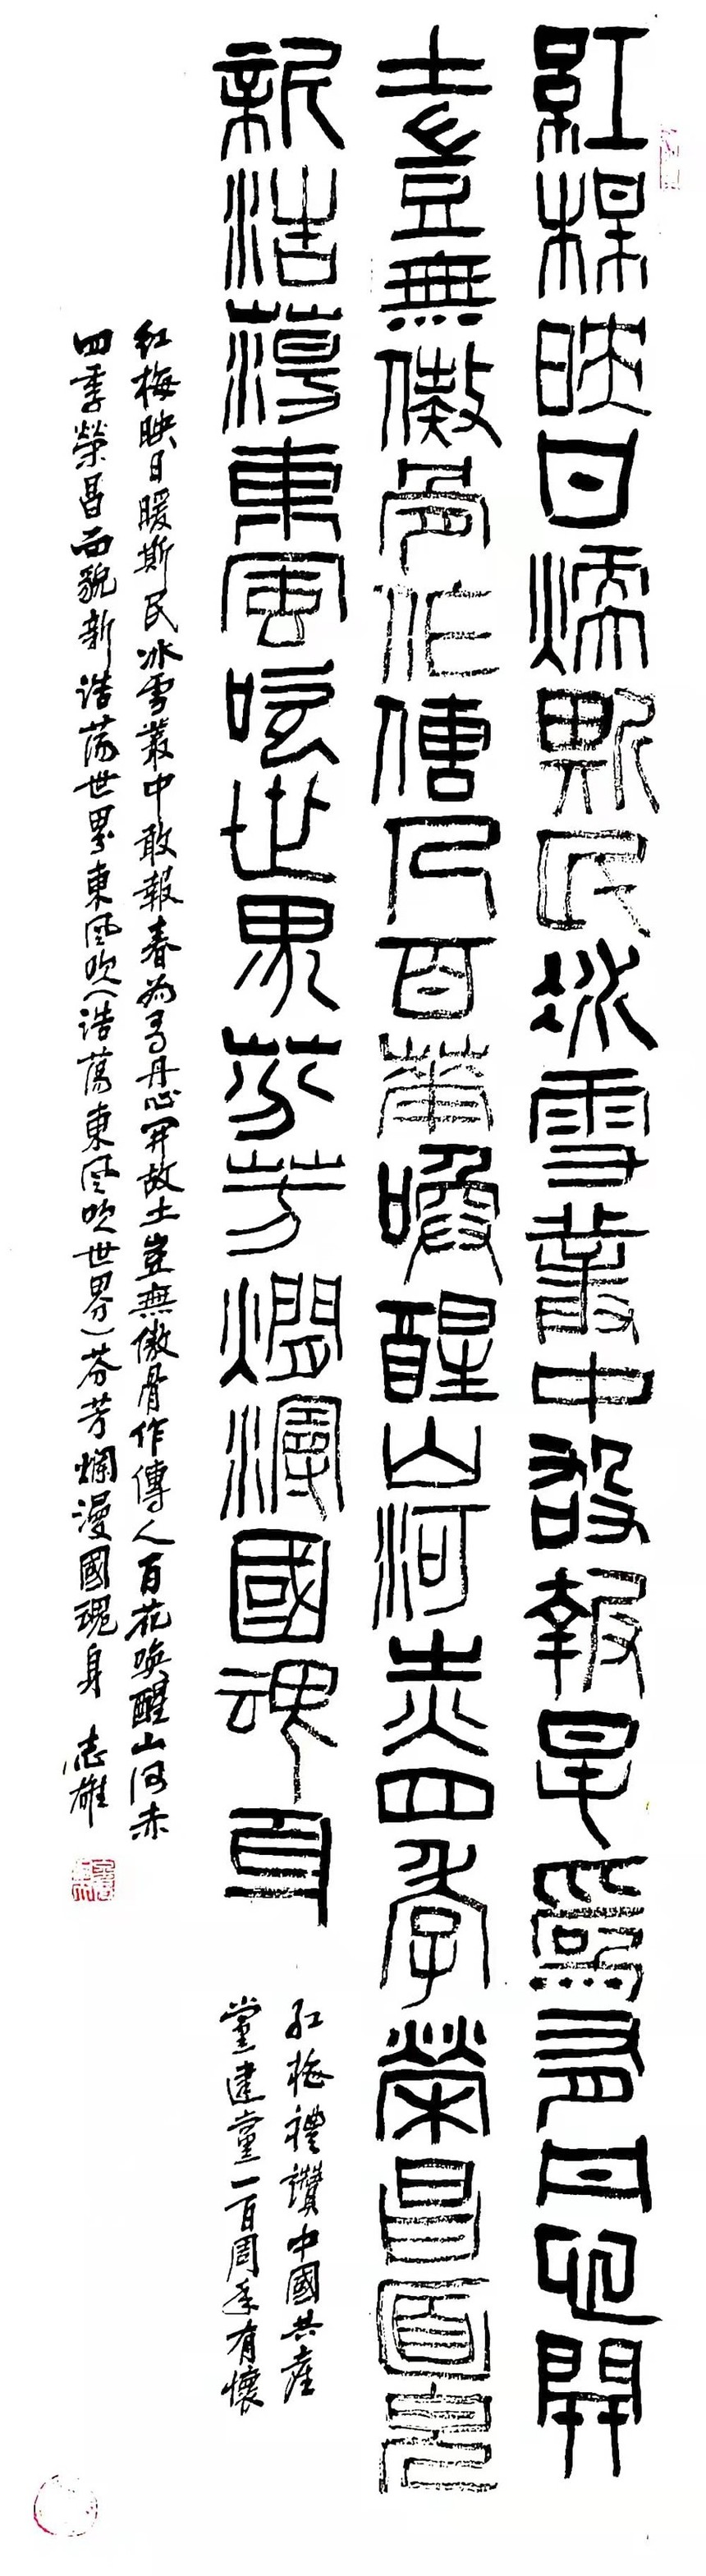 紅楳映日煗斯民冰雪叢中敢報春爲有丹心開
土豈無傲骨作傳人百華喚醒山河赤四季榮昌面皃
新浩蕩東風吹世界芬芳爛漫國魂身
紅梅禮讚中國共產
黨建黨一百周年有懷
紅梅映日暖斯民冰雪叢中敢報春為有丹心開故土豈無傲骨作傳人百花喚醒山河赤
四季榮昌面貌新浩蕩世界東風吹(浩蕩東風吹世界)芬芳爛漫國魂身 志雄